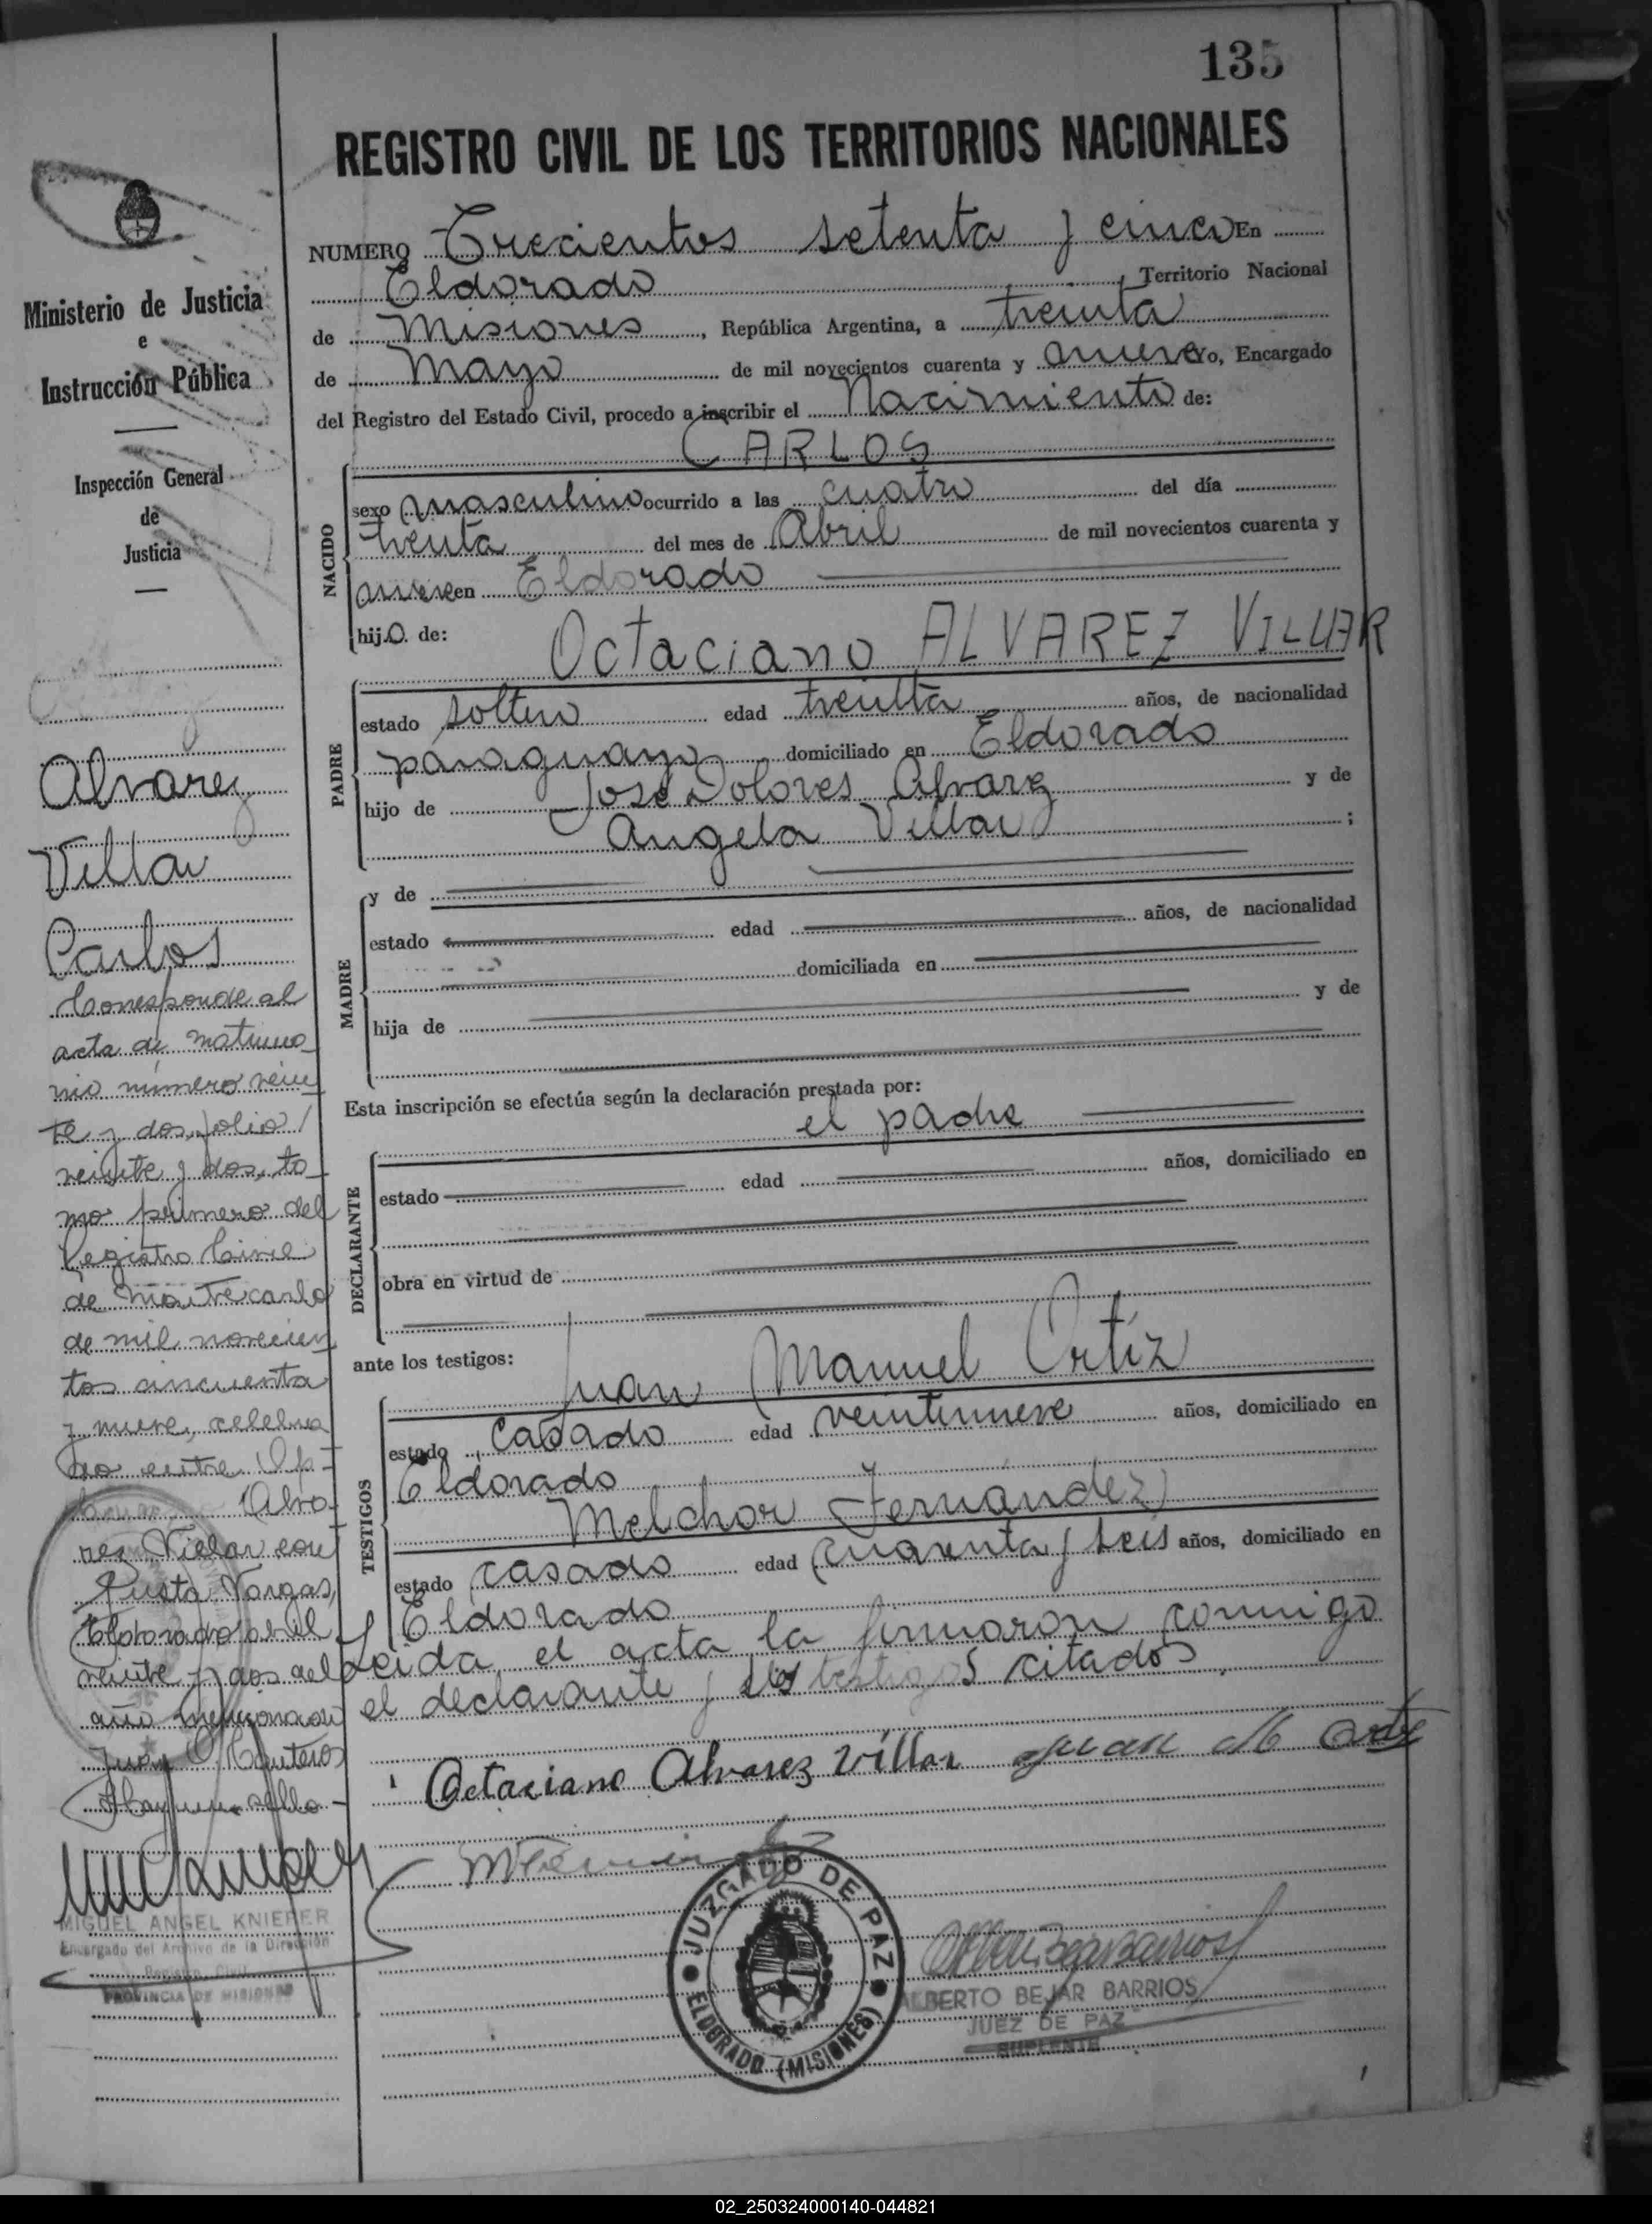 135
REGISTRO CIVIL DE LOS TERRITORIOS NACIONALES
Ministerio de Justicia
e
Instrucción Pública
Inspección General
de
Justicia
NUMERO Trecientos setenta y cinco En
Eldorado Territorio Nacional
de Misiones, República Argentina, a treinta
de Mayo de mil novecientos cuarenta y nueve yo, Encargado
del Registro del Estado Civil, procedo a inscribir el Nacimiento de:
CARLOS
NACIDO
sexo masculino ocurrido a las cuatro del día
treinta del mes de Abril de mil novecientos cuarenta y
nueve en Eldorado
hijo de: Octaciano ALVAREZ VILLAR
PADRE
estado soltero edad treinta años, de nacionalidad
paraguayo domiciliado en Eldorado
hijo de José Dolores Alvarez y de
Angela Villar ;
MADRE
y de
estado edad años, de nacionalidad
domiciliada en
hija de y de
Esta inscripción se efectúa según la declaración prestada por:
el padre
DECLARANTE
estado edad años, domiciliado en
obra en virtud de
ante los testigos: Juan Manuel Ortíz
TESTIGOS
estado casado edad veintinueve años, domiciliado en
Eldorado
Melchor Fernández
estado casado edad cuarenta y seis años, domiciliado en
Eldorado
Leida el acta la firmaron conmigo
el declarante y los testigos citados.
Octaciano Alvarez Villar Juan M Ortiz
JUZGADO DE PAZ
ELDORADO (MISIONES)
ALBERTO BEJAR BARRIOS
JUEZ DE PAZ
SUPLENTE
Alvarez
Villar
Carlos
Corresponde al
acta de matrimo
nio número vein
te y dos, folio
veinte y dos, to
mo primero del
Registro Civil
de Montecarlo
de mil novecien
tos cincuenta
y nueve, celebra
do entre
Alva
rez Villar con
Justa Vargas,
Eldorado abril
veinte y dos del
año mencionado
MIGUEL ANGEL KNIEFER
Encargado del Archivo de la Dirección
Registro Civil
PROVINCIA DE MISIONES
02_250324000140-044821